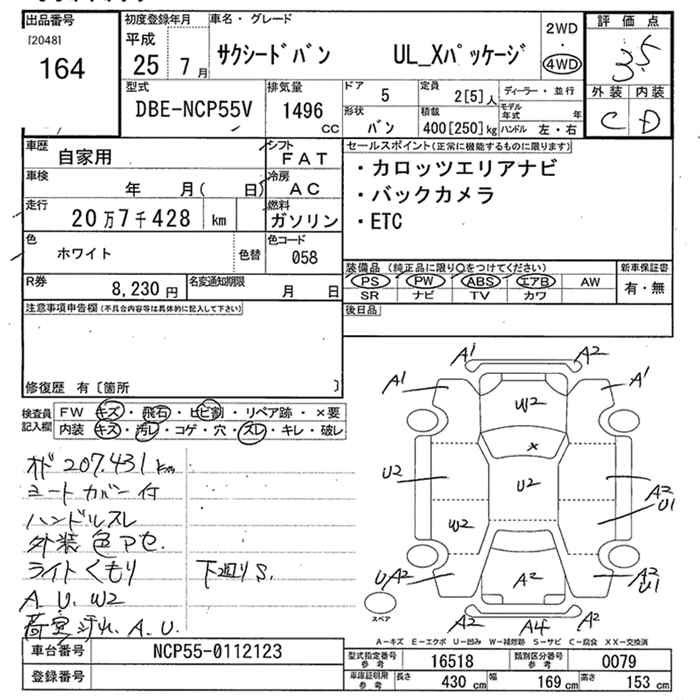 出品番号 初度登録年月 車名・グレード 評価点
[2048] 平成 2WD
164 25 7月 サクシードバン UL_Xパッケージ ・ 3.5
4WD
型式 排気量 ドア 5 定員 2[5]人 ディーラー・並行 外装 内装
DBE-NCP55V 1496 cc 形状 バン 積載 400[250]kg モデル年式 年 C D
ハンドル 左・右
車歴 自家用 シフト FAT セールスポイント(正常に機能するものに限ります)
車検 年 月( 日) 冷房 AC ・カロッツエリアナビ
走行 20万7千428 km 燃料 ガソリン ・バックカメラ
・ETC
色 ホワイト 色替 色コード 058
装備品(純正品に限り○をつけてください) 新車保証書
R券 8,230円 名変通知期限 月 日 PS PW ABS エアB AW 有・無
SR ナビ TV カワ
注意事項申告欄(不具合内容等は具体的に記入して下さい) 後日品
修復歴 有〔箇所 〕
検査員 FW キズ・飛石・ヒビ割・リペア跡・×要
記入欄 内装 キズ・汚レ・コゲ・穴・スレ・キレ・破レ
A1 A2
A1 A1
W2
×
U2 U2 A2 U1
W2
U A2 A2 A2 U1
A4 A2
スペア
オド 207.431km
シートカバー付
ハンドルスレ
外装色アセ.
ライトくもり 下廻りS.
A. U. W2
荷室汚れ. A. U.
A-キズ E-エクボ U-凹み W-補修跡 S-サビ C-腐食 XX-交換済
車台番号 NCP55-0112123 型式指定番号 参考 16518 類別区分番号 参考 0079
登録番号 車庫証明用 参考 長さ 430 cm 幅 169 cm 高さ 153 cm